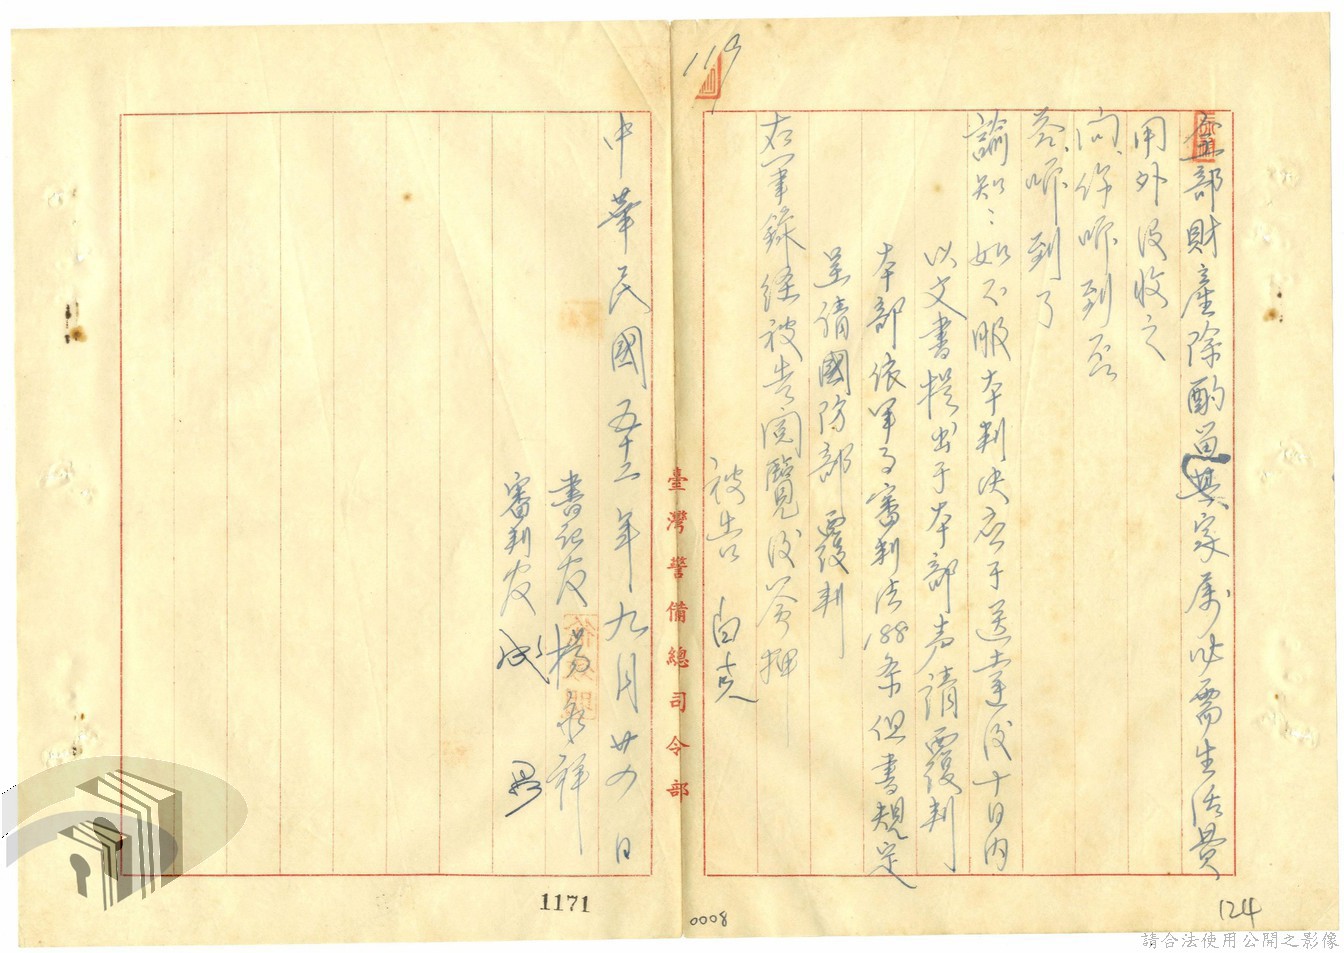 119
全部財產除酌留其家屬必需生活費
用外沒收之
問、你听到否
答、听到了
諭知：如不服本判决应于送達後十日內
以文書提出于本部声請覆判
本部依軍事審判法188条但書規定
呈請國防部覆判
右筆錄经被告閱覽後簽押
被告 白克
臺灣警備總司令部
中華民國五十二年九月廿四日
書记官 楊永祥
審判官 成
1171
0008
124
請合法使用公開之影像